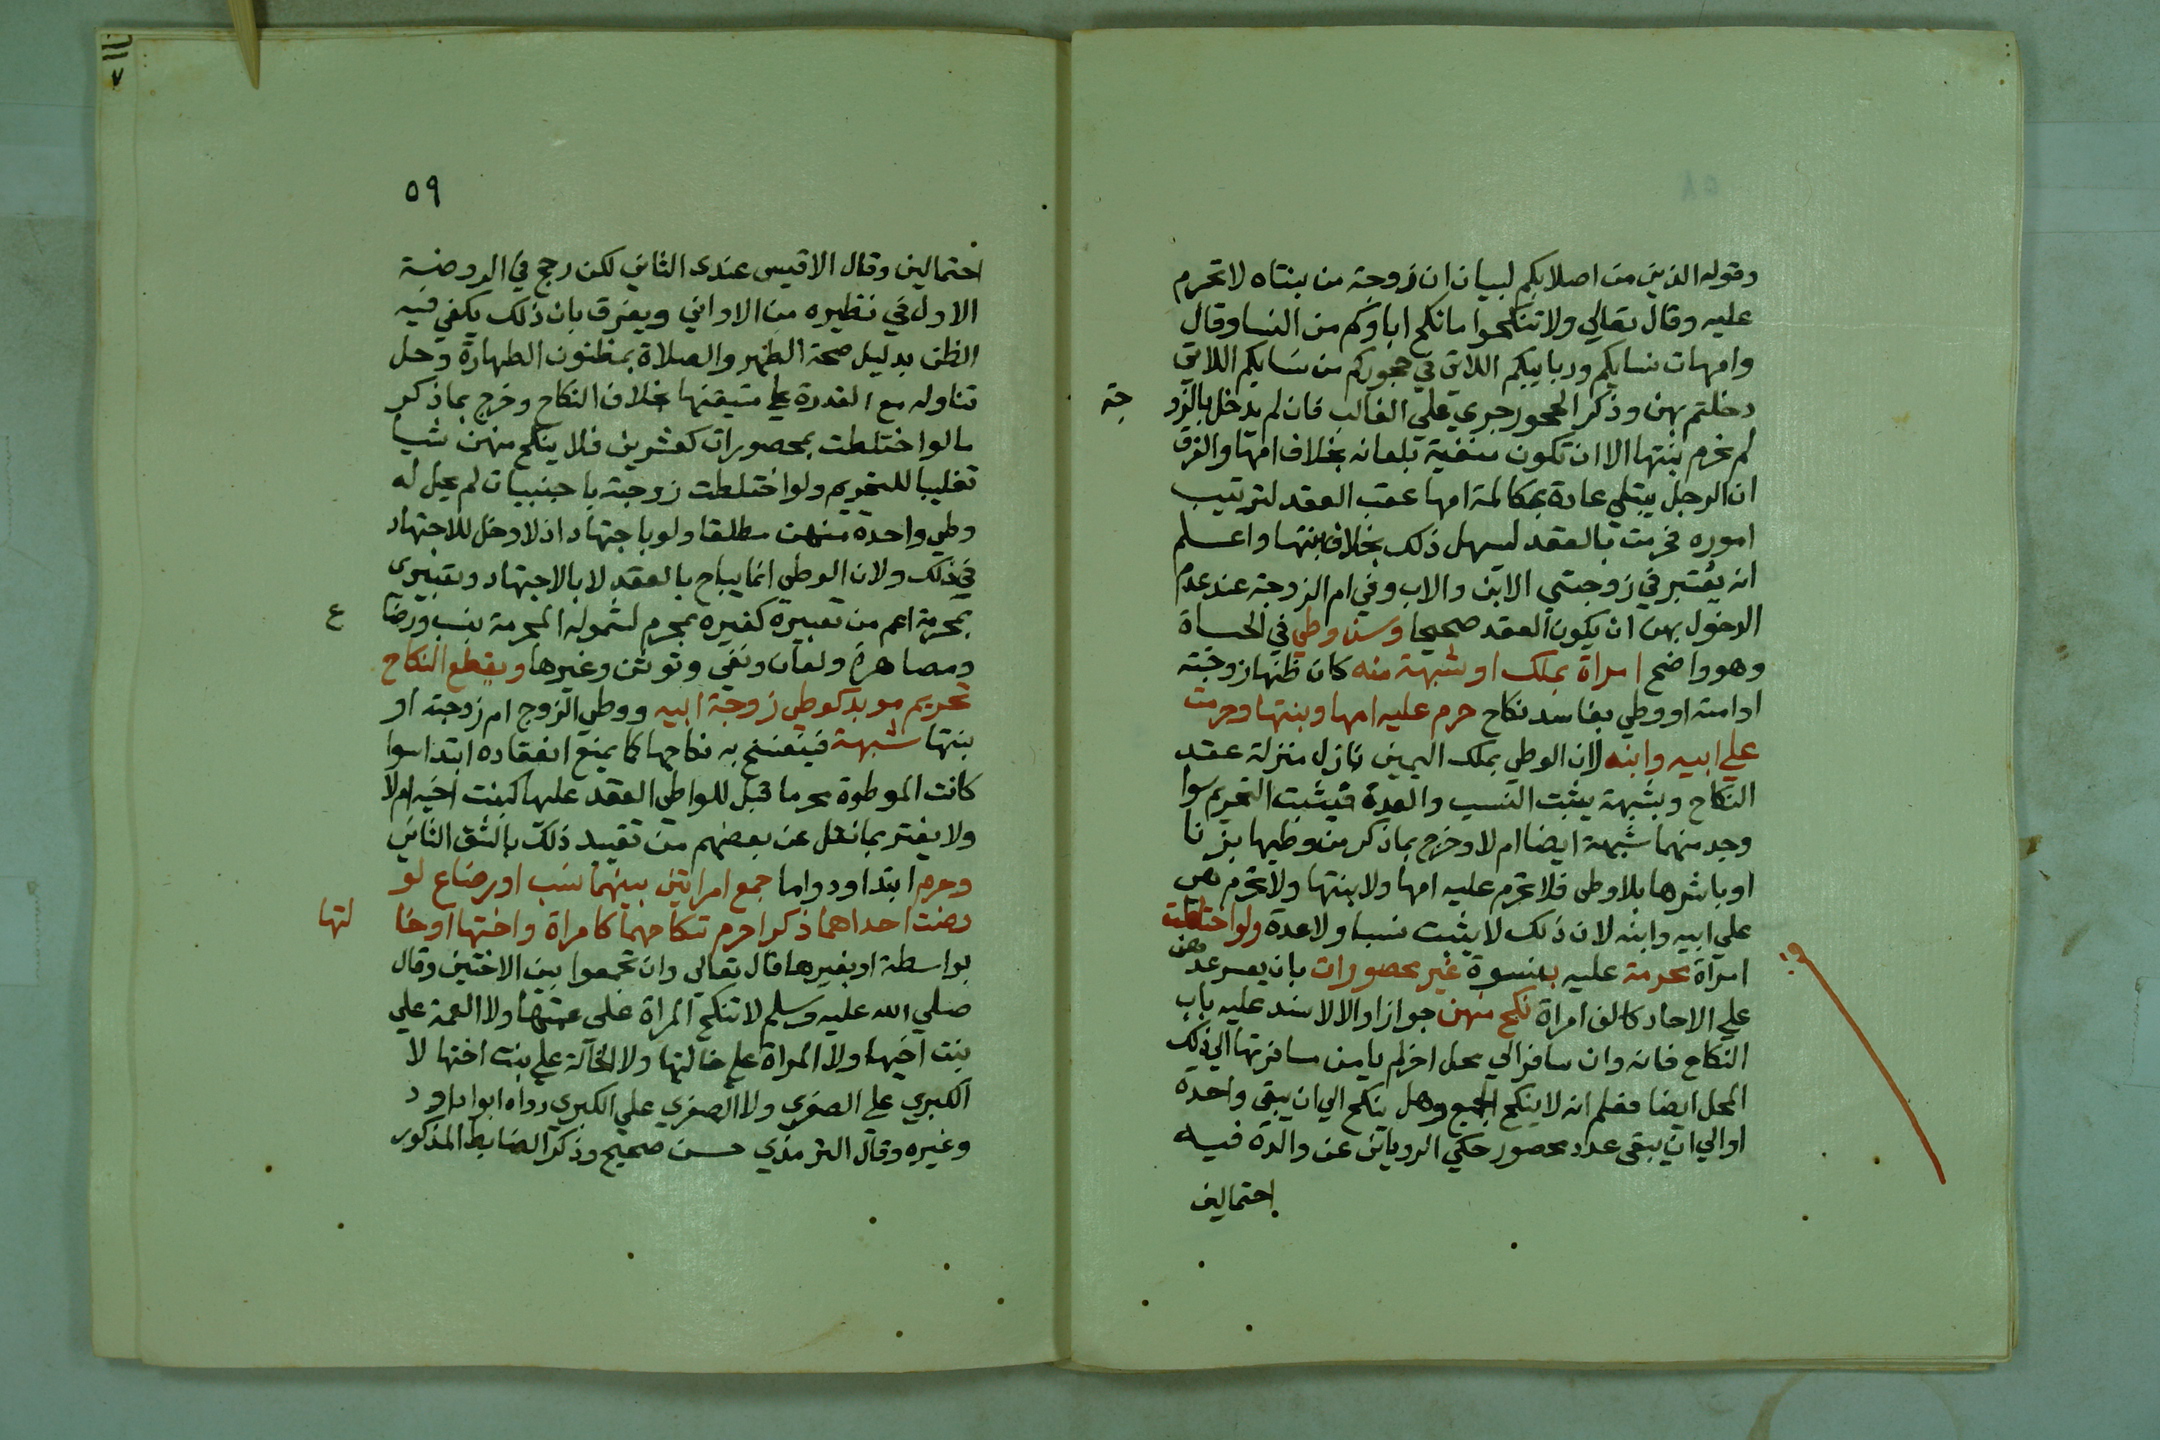 وقوله الذين من اصلابكم لبيان ان زوجة من بنتاه لا تحرم
عليه وقال تعالي ولا تنكحوا ما نكح اباوكم من النسا وقال
وامهات نسايكم ورباييكم اللاتي في حجوركم من نسايكم اللاتي
دخلتم بهن وذكر الحجور جري علي الغالب فان لم يدخل بالزو
جة
لم تحرم بنتها الا ان تكون منفية بلعانه بخلاف امها والفرق
ان الرجل يبتلي عادة بمكالمة امها عقب العقد لترتيب
اموره فحرمت بالعقد ليسهل ذلك بخلاف بنتها واعلم
انه يعتبر في زوجتي الابن والاب وفي ام الزوجة عند عدم
الدخول بهن ان يكون العقد صحيحا ومن وطي في الحياة
وهو واضح امراة بملك او شبهة منه كان ظنها زوجته
او امته او وطي بفاسد نكاح حرم عليه امها وبنتها وحرمت
علي ابيه وابنه لان الوطي بملك اليمين نازل منزلة عقد
النكاح وبشبهة يثبت النسب والعدة فيثبت التحريم سوا
وجد منهما شبهة ايضا ام لا وخرج بما ذكر من وطيها بزنا
او باشرها بلا وطي فلا تحرم عليه امها ولا بنتها ولا تحرم هي
علي ابيه وابنه لان ذلك لا يثبت نسبا ولا عدة ولو اختلطت
امراة محرمة عليه بنسوة غير محصورات بان يعسر عدهن
علي الاحاد كالف امراة نكح منهن جوازا والا لانسد عليه باب
النكاح فانه وان سافر الي محل اخر لم يامن مسافرتها الي ذلك
المحل ايضا فعلم انه لا ينكح الجميع وهل ينكح الي ان يبقي واحدة
او الي ان يبقي عدد محصور حكي الروياني عن والده فيه
احتمالين
٥٩
احتمالين وقال الاقيس عندي الثاني لكن رجح في الروضة
الاول في نظيره من الاواني ويفرق بان ذلك يكفي فيه
الظن بدليل صحة الطهر والصلاة بمظنون الطهارة وحل
تناوله مع القدرة علي متيقنها بخلاف النكاح وخرج بما ذكر
ما لو اختلطت بمحصورات كعشرين فلا ينكح منهن شيا
تغليبا للتحريم ولو اختلطت زوجته باجنبيات لم يحل له
وطي واحدة منهن مطلقا ولو باجتهاد اذ لا دخل للاجتهاد
في ذلك ولان الوطي انما يباح بالعقد لا بالاجتهاد وتعبيري
بمحرمة اعم من تعبيره كغيره بمحرم لشموله المحرمة بنسب ورضا
ع
ومصاهرة ولعان ونفي وتوثن وغيرها ويقطع النكاح
تحريم موبد كوطي زوجة ابيه ووطي الزوج ام زوجته او
بنتها شبهة فينفسخ به نكاحها كما يمنع انعقاده ابتدا سوا
كانت الموطوة محرما قبل للواطي العقد عليها كبنت اخيه ام لا
ولا يغتر بما نقل عن بعضهم من تقييد ذلك بالشق الثاني
وحرم ابتدا ودواما جمع امراتين بينهما نسب او رضاع لو
فرضت احداهما ذكرا حرم تناكحهما كامراة واختها او خا
لتها
بواسطة او بغيرها قال تعالي وان تجمعوا بين الاختين وقال
صلي الله عليه وسلم لا تنكح المراة علي عمتها ولا العمة علي
بنت اخيها ولا المراة علي خالتها ولا الخالة علي بنت اختها لا
الكبري علي الصغري ولا الصغري علي الكبري رواه ابو داود
وغيره وقال الترمذي حسن صحيح وذكر الضابط المذكور